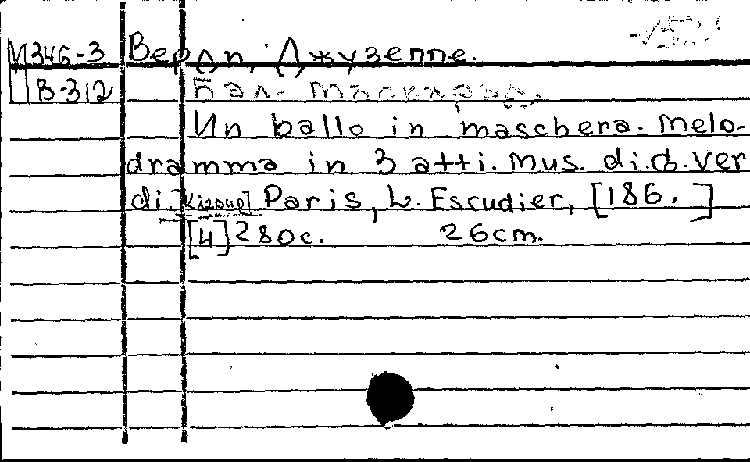 М346-3 Верди, Джузеппе.
В-312 Бал-маскарад.
Un ballo in maschera. Melo-
dramma in 3 atti. Mus. di G. Ver
di. Paris, L. Escudier, [186. ]
[4] 280с. 26cm.